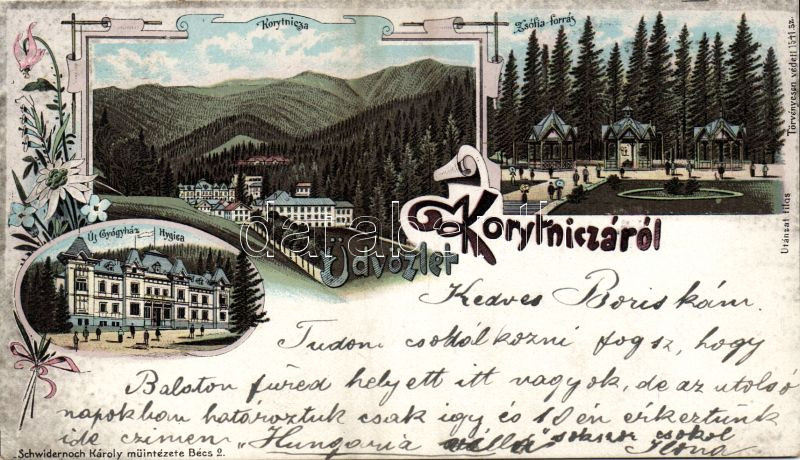 Korytnicza
Zsófia-forrás
Törvényesen védett 1541 sz.
Utánzat tilos
Új Gyógyház Hygiea
Üdvözlet Korytniczáról
darabanth
Kedves Boriskám.
Tudom csodálkozni fogsz, hogy
Balaton füred helyett itt vagyok, de az utolsó
napokban határoztuk csak igy és 18 én érkeztünk
ide czimem „Hungaria villa" sokszor csókol
Ilona
Schwidernoch Károly müintézete Bécs 2.